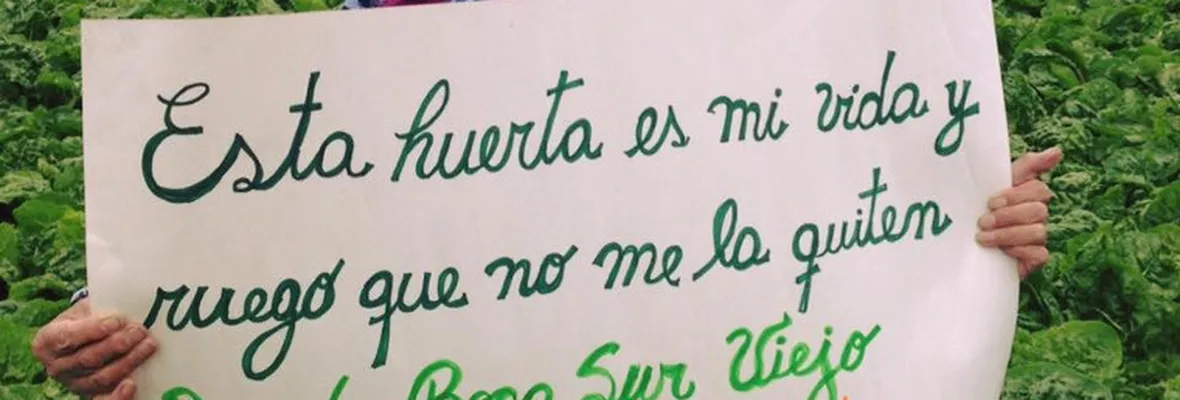 Esta huerta es mi vida y
ruego que no me la quiten
Sur Viejo